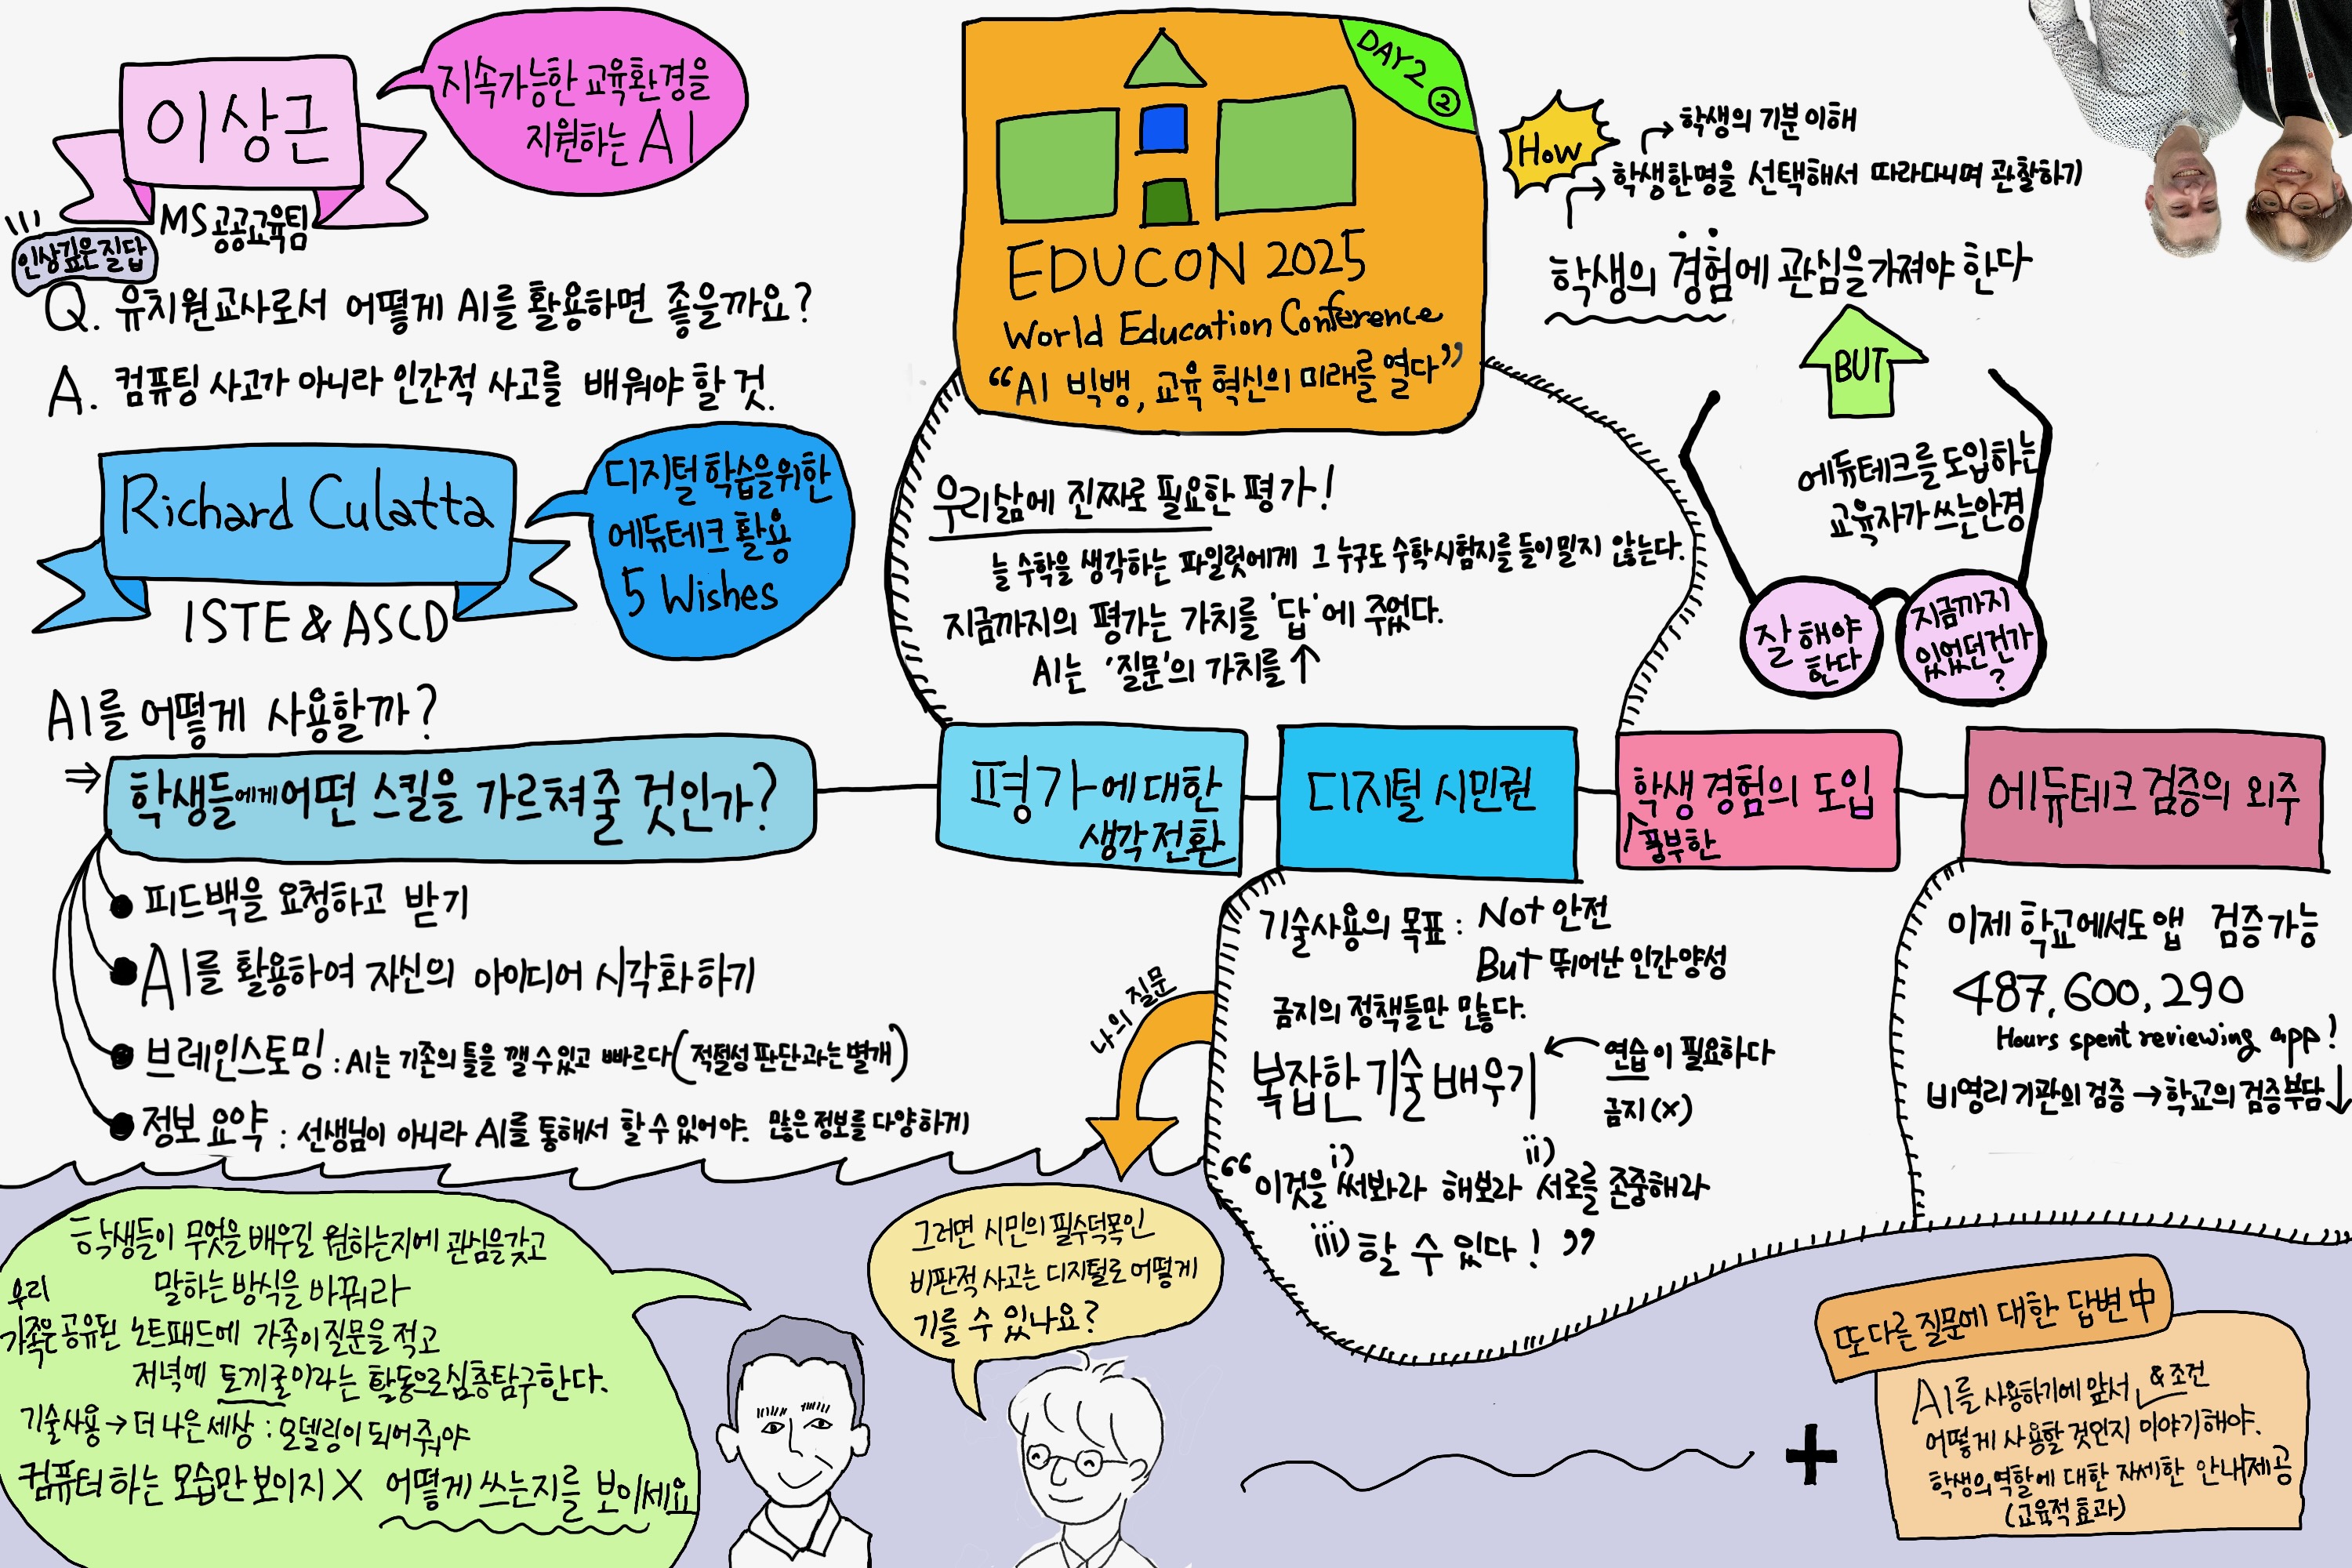 이상근
MS 공공교육팀
지속가능한 교육환경을
지원하는 AI
인상깊은 질답
Q. 유치원교사로서 어떻게 AI를 활용하면 좋을까요?
A. 컴퓨팅 사고가 아니라 인간적 사고를 배워야 할 것.
Richard Culatta
ISTE & ASCD
디지털 학습을 위한
에듀테크 활용
5 Wishes
DAY2 ②
EDUCON 2025
World Education Conference
“AI 빅뱅, 교육 혁신의 미래를 열다”
AI를 어떻게 사용할까?
⇒ 학생들에게 어떤 스킬을 가르쳐줄 것인가?
피드백을 요청하고 받기
AI를 활용하여 자신의 아이디어 시각화하기
브레인스토밍 : AI는 기존의 틀을 깰 수 있고 빠르다(적절성 판단과는 별개)
정보 요약 : 선생님이 아니라 AI를 통해서 할 수 있어야. 많은 정보를 다양하게
평가에 대한
생각 전환
우리 삶에 진짜로 필요한 평가!
늘 수학을 생각하는 파일럿에게 그 누구도 수학시험지를 들이밀지 않는다.
지금까지의 평가는 가치를 '답'에 주었다.
AI는 '질문'의 가치를 ↑
디지털 시민권
기술사용의 목표 : Not 안전
But 뛰어난 인간 양성
금지의 정책들만 많다.
복잡한 기술 배우기
연습이 필요하다
금지(X)
i) ii)
“이것을 써봐라 해보라 서로를 존중해라
iii) 할 수 있다! ”
나의 질문
그러면 시민의 필수덕목인
비판적 사고는 디지털로 어떻게
기를 수 있나요?
학생들이 무엇을 배우길 원하는지에 관심을 갖고
말하는 방식을 바꿔라
우리
가족은 공유된 노트패드에 가족이 질문을 적고
저녁에 토끼굴이라는 활동으로 심층탐구한다.
기술사용 → 더 나은 세상 : 모델링이 되어줘야
컴퓨터 하는 모습만 보이지 X 어떻게 쓰는지를 보이세요
학생 경험의 도입
풍부한
How
학생의 기분 이해
학생한명을 선택해서 따라다니며 관찰하기
학생의 경험에 관심을 가져야 한다
BUT
에듀테크를 도입하는
교육자가 쓰는 안경
잘 해야
한다
지금까지
있었던건가
?
에듀테크 검증의 외주
이제 학교에서도 앱 검증 가능
487,600,290
Hours spent reviewing app!
비영리 기관의 검증 → 학교의 검증부담 ↓
+
또 다른 질문에 대한 답변 中
AI를 사용하기에 앞서 & 조건
어떻게 사용할 것인지 이야기해야.
학생의 역할에 대한 자세한 안내제공
(교육적 효과)